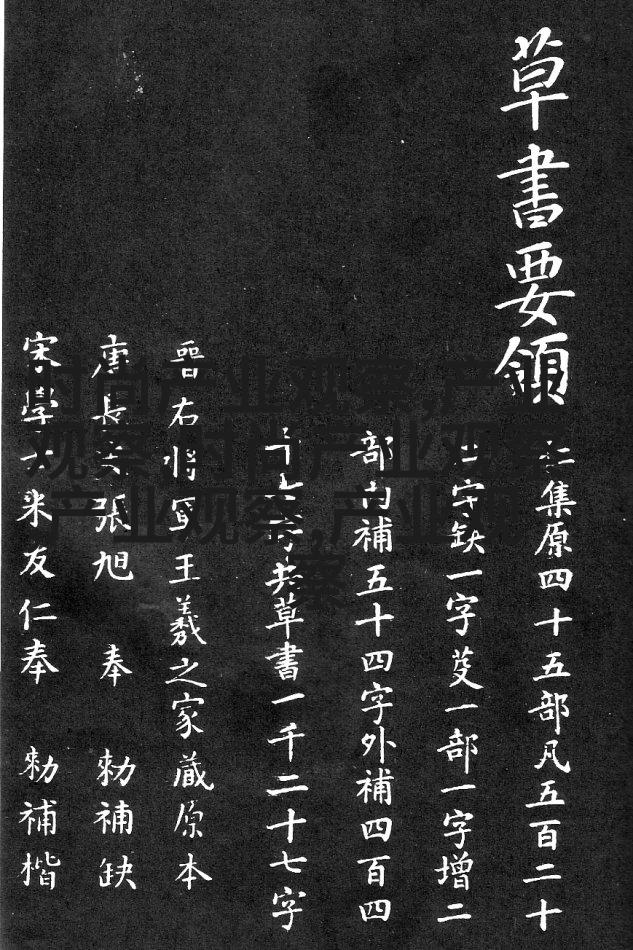 草書要領
集原四十五部凡五百二十
字缺一字芟一部一字增二
部内補五十四字外補四百四
共草書一千二十七字
晉右將軍王羲之家藏原本
唐長史張旭 奉 勑補缺
宋學士米友仁奉 勑補楷
时尚产业观察,产业
观察,时尚产业观察
,产业观察,产业观
察